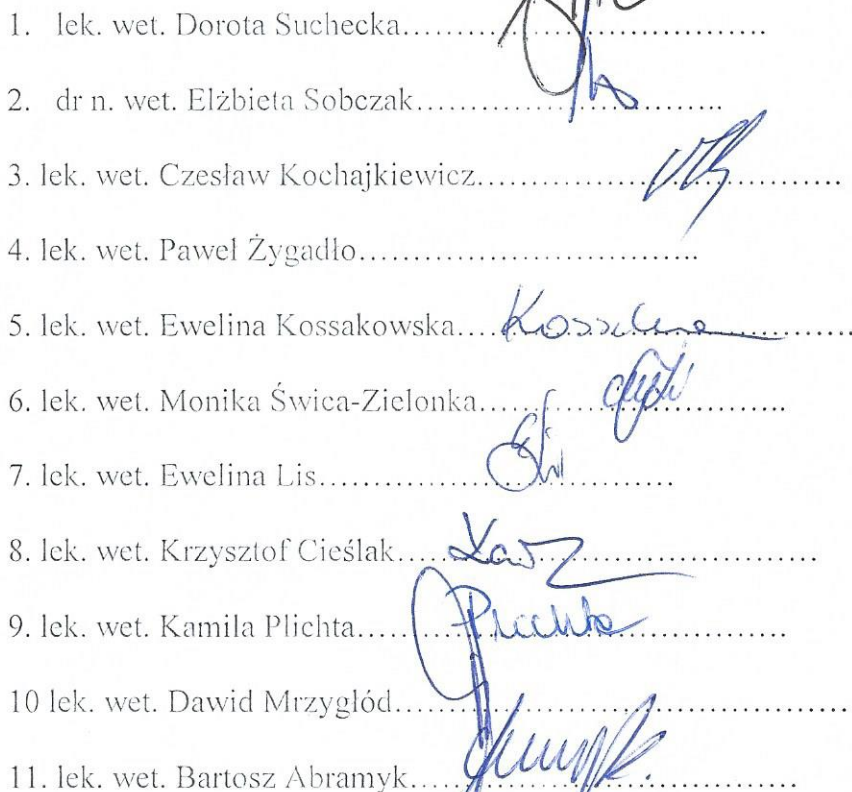 1. lek. wet. Dorota Suchecka……………………………….
2. dr n. wet. Elżbieta Sobczak…………………………..
3. lek. wet. Czesław Kochajkiewicz………………………………
4. lek. wet. Paweł Żygadło……………………………..
5. lek. wet. Ewelina Kossakowska…………………………………
6. lek. wet. Monika Świca-Zielonka…………………………..
7. lek. wet. Ewelina Lis……………………………….
8. lek. wet. Krzysztof Cieślak……………………………………
9. lek. wet. Kamila Plichta…… Plichta ……………
10 lek. wet. Dawid Mrzygłód………………………………………
11. lek. wet. Bartosz Abramyk…………………………………